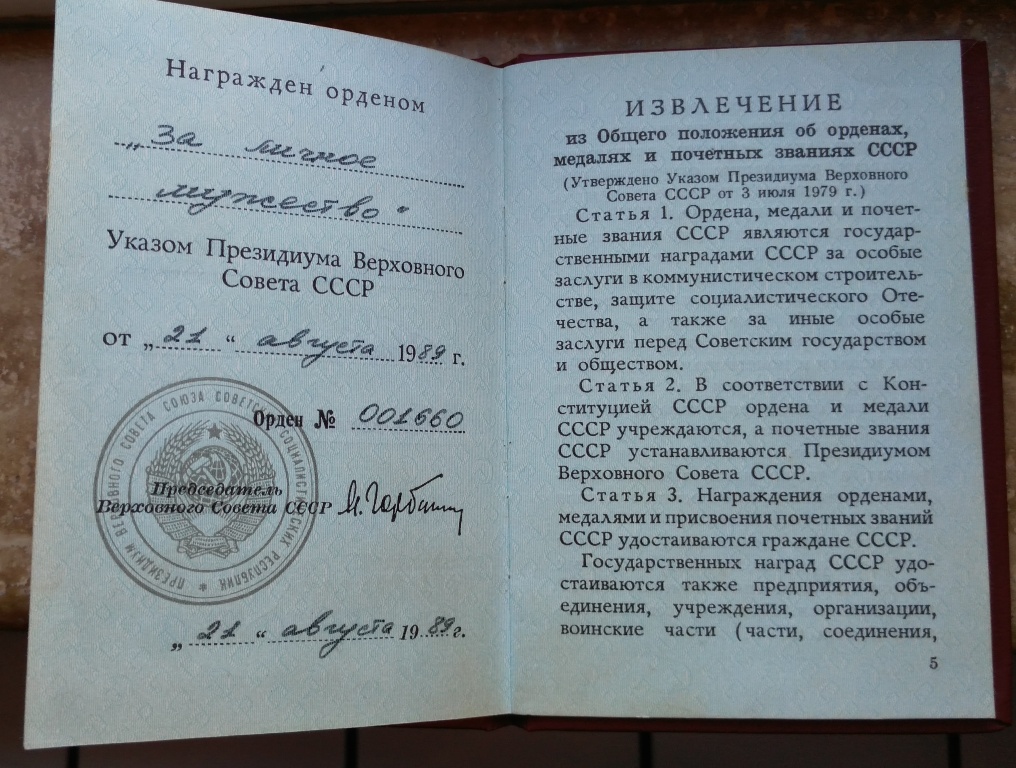 Награжден орденом
„За личное
мужество"
Указом Президиума Верховного
Совета СССР
от „21" августа 1989 г.
Орден № 001660
Председатель
Верховного Совета СССР М. Горбачев
„21" августа 1989 г.
ПРЕЗИДИУМ ВЕРХОВНОГО СОВЕТА СОЮЗА СОВЕТСКИХ СОЦИАЛИСТИЧЕСКИХ РЕСПУБЛИК
ИЗВЛЕЧЕНИЕ
из Общего положения об орденах,
медалях и почетных званиях СССР
(Утверждено Указом Президиума Верховного
Совета СССР от 3 июля 1979 г.)
Статья 1. Ордена, медали и почет-
ные звания СССР являются государ-
ственными наградами СССР за особые
заслуги в коммунистическом строитель-
стве, защите социалистического Оте-
чества, а также за иные особые
заслуги перед Советским государством
и обществом.
Статья 2. В соответствии с Кон-
ституцией СССР ордена и медали
СССР учреждаются, а почетные звания
СССР устанавливаются Президиумом
Верховного Совета СССР.
Статья 3. Награждения орденами,
медалями и присвоения почетных званий
СССР удостаиваются граждане СССР.
Государственных наград СССР удо-
стаиваются также предприятия, объ-
единения, учреждения, организации,
воинские части (части, соединения,
5